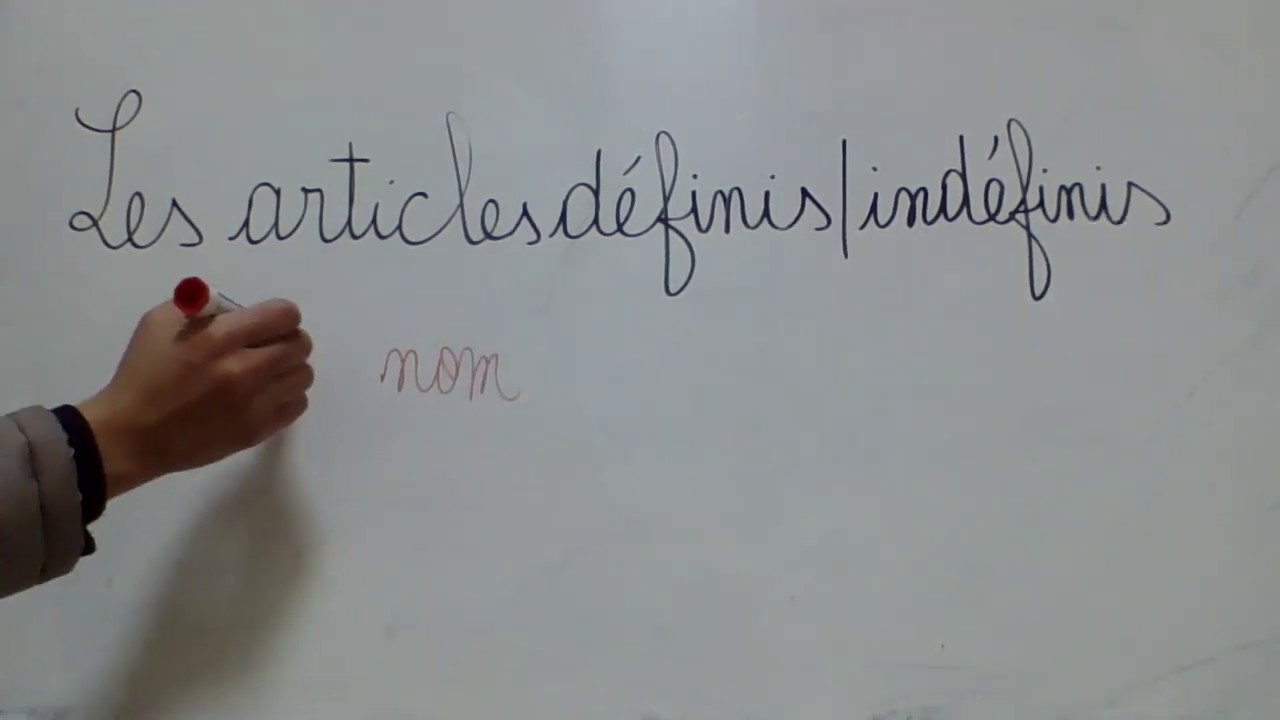 Les articles définis/indéfinis
nom